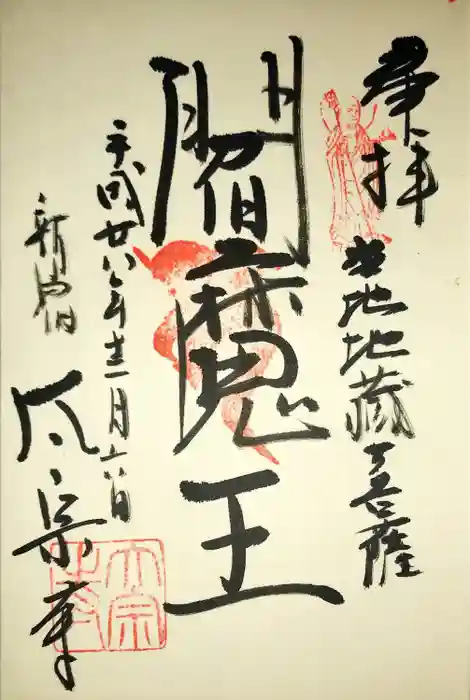 奉拝
当地地蔵菩薩
閻魔王
平成廿八年十二月六日
新宿
太宗寺